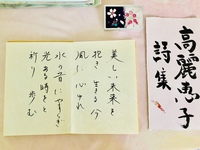 美しい未来を
抱き生きる今
風に心ゆれ
水の音にやすらぎ
光ある時をと
祈り歩む
高麗恵子
詩集